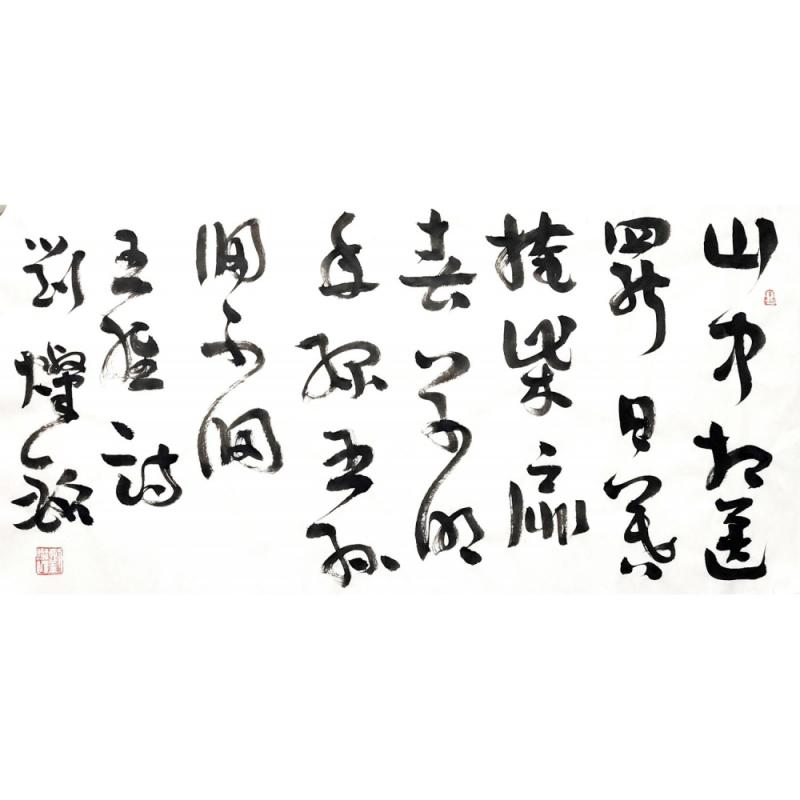 山中相送
罷日暮
掩柴扉
春草明
年綠王孫
歸不歸
王維詩
劉燦銘